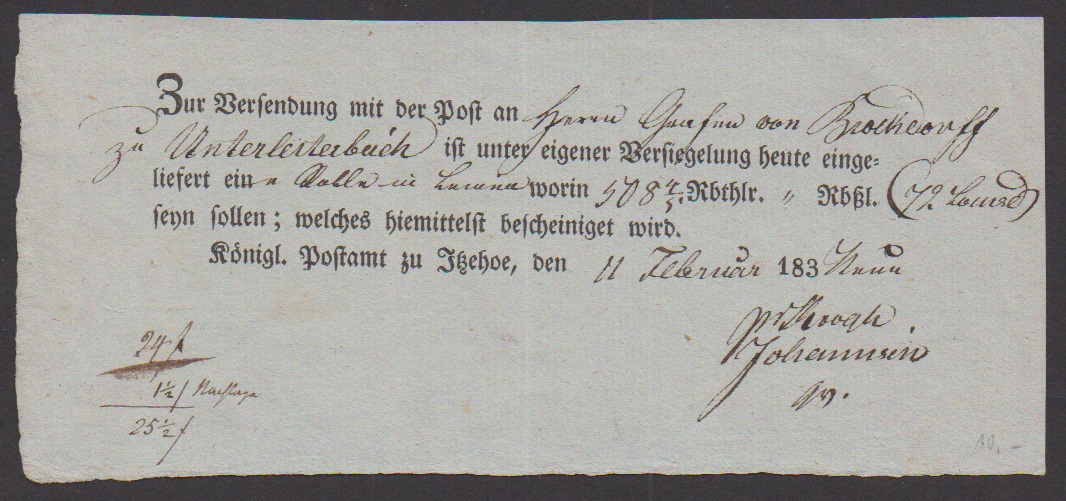 Zur Versendung mit der Post an Herrn Grafen von Brockdorff
zu Unterleiterbach ist unter eigener Versiegelung heute einge=
liefert eine Rolle in Leinen worin 508 4/5. Rbthlr. " Rbßl. (72 Louisd)
seyn sollen; welches hiemittelst bescheiniget wird.
Königl. Postamt zu Itzehoe, den 11 Februar 183 Neun
Johannsen
24 ß
1 1/2 ß
25 1/2 ß
10.-